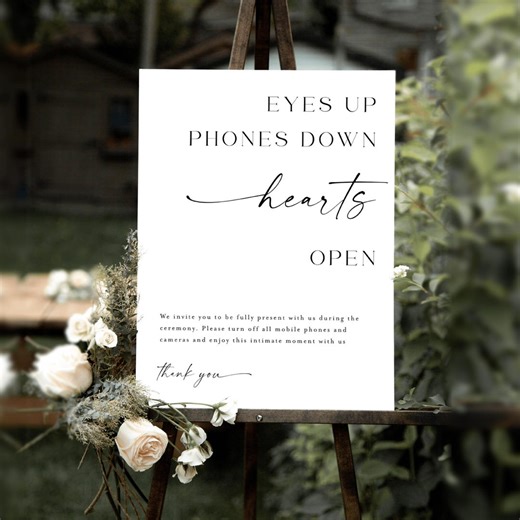 EYES UP
PHONES DOWN
hearts
OPEN
We invite you to be fully present with us during the
ceremony. Please turn off all mobile phones and
cameras and enjoy this intimate moment with us
thank you